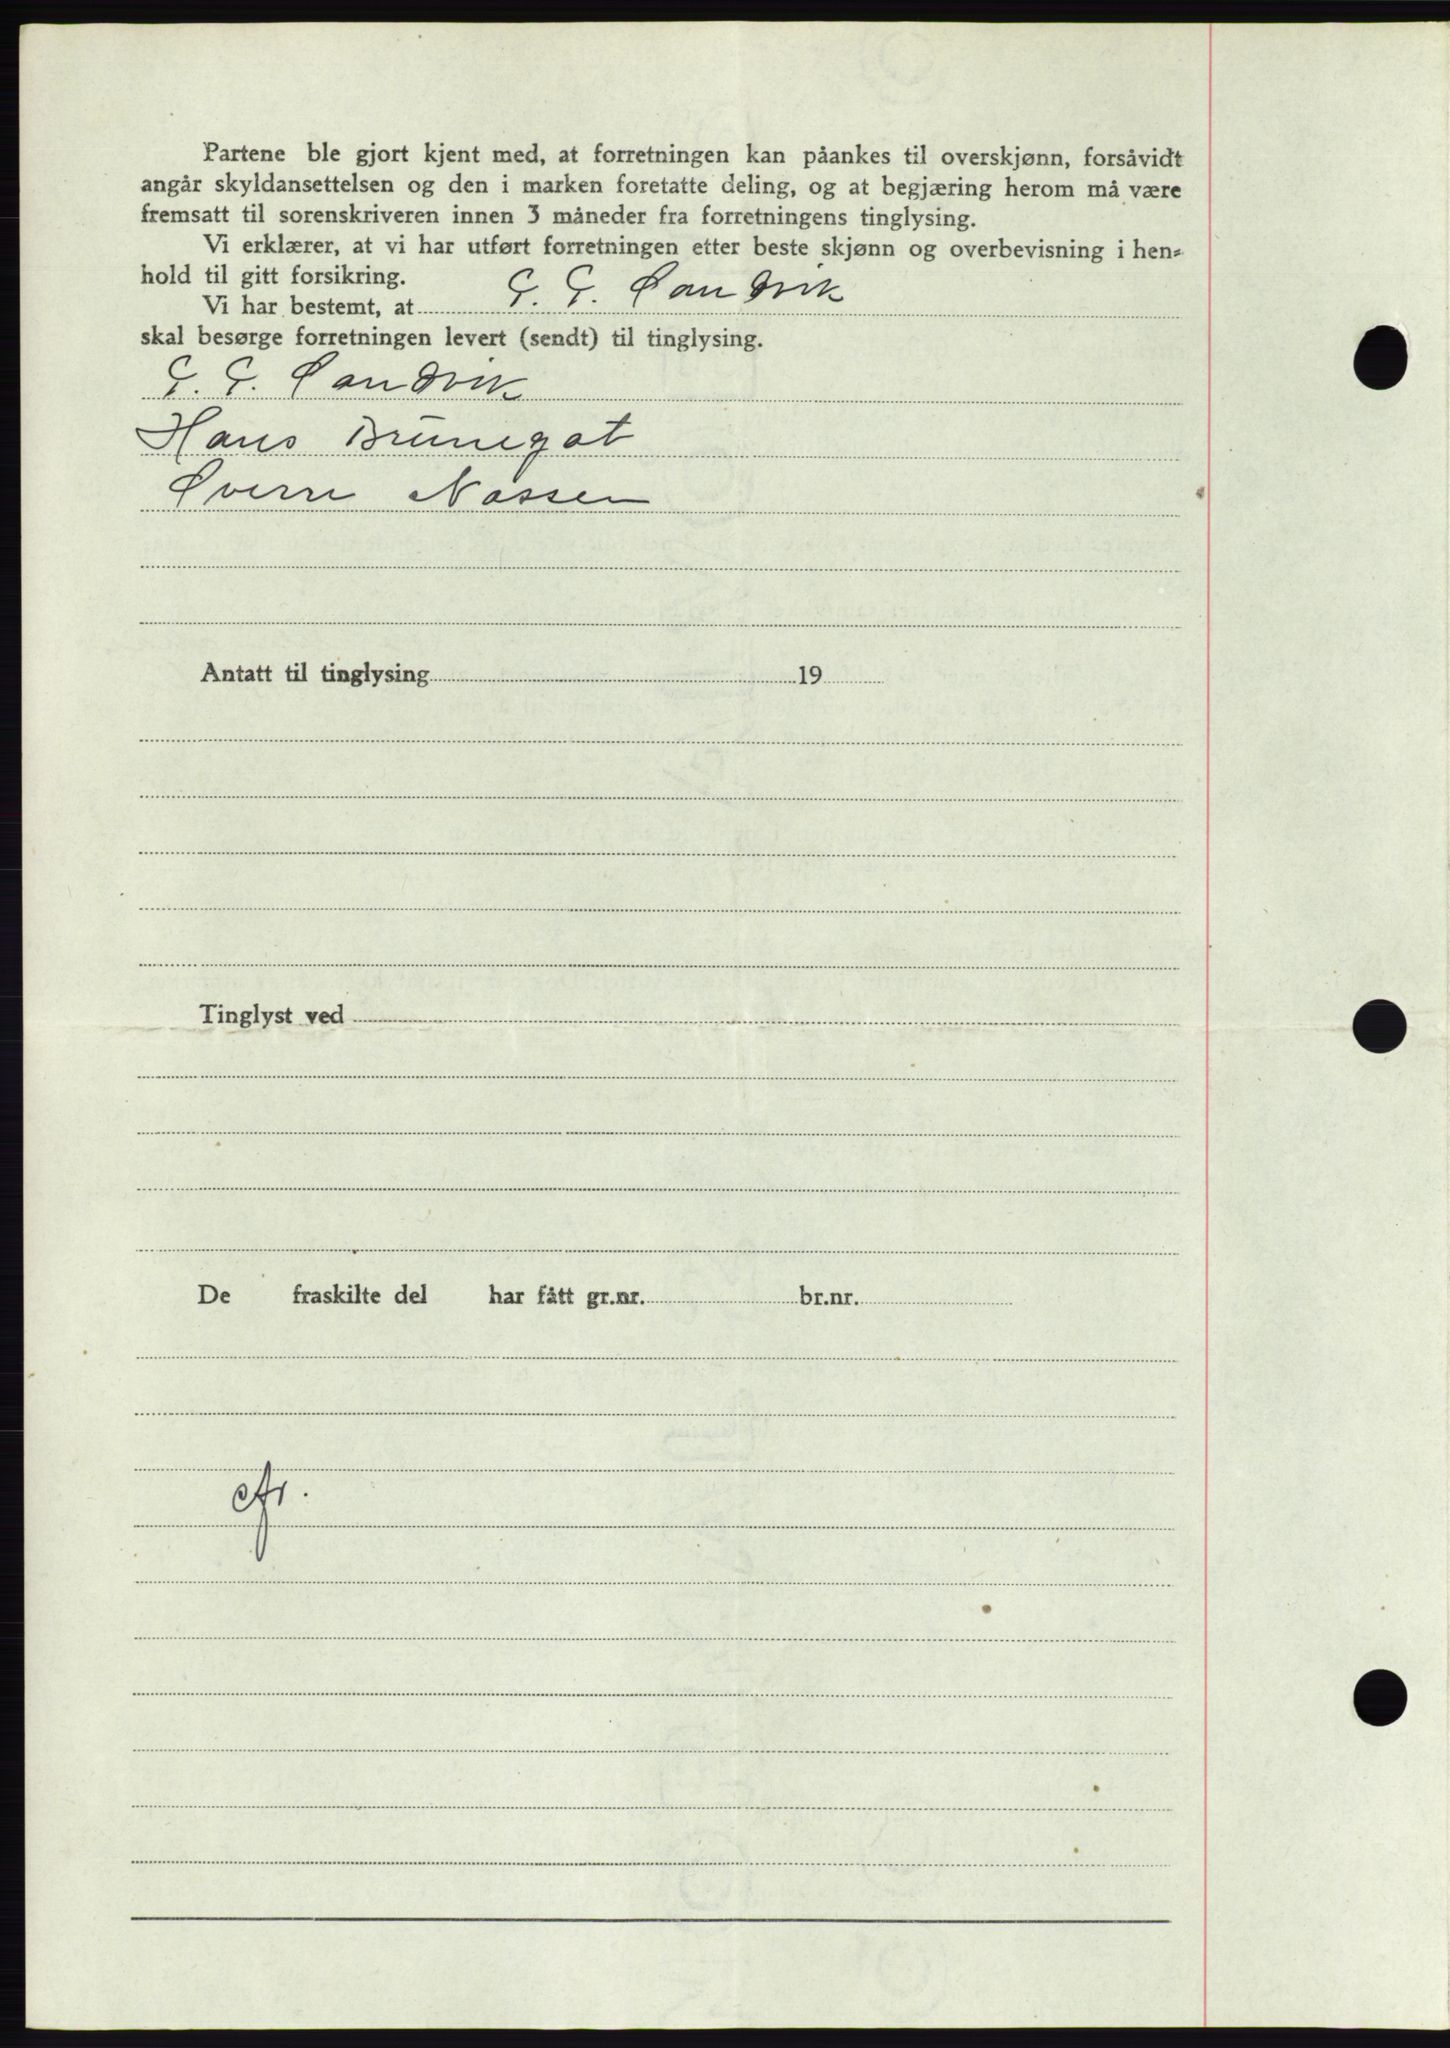 Partene ble gjort kjent med, at forretningen kan påankes til overskjønn, forsåvidt
angår skyldansettelsen og den i marken foretatte deling, og at begjæring herom må være
fremsatt til sorenskriveren innen 3 måneder fra forretningens tinglysing.
Vi erklærer, at vi har utført forretningen etter beste skjønn og overbevisning i hen-
hold til gitt forsikring.
Vi har bestemt, at G. G. Sandvik
skal besørge forretningen levert (sendt) til tinglysing.
G. G. Sandvik
Hans Brunegot
Sverre Nossen
Antatt til tinglysing 19
Tinglyst ved
De fraskilte del har fått gr.nr. br.nr.